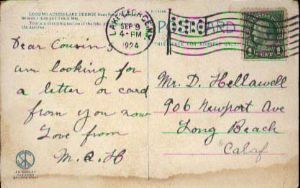 LAKE GEORGE N.Y.
SEP 9
4-PM
1924
POST CARD
Dear Cousin
am looking for
a letter or card
from you now
Love from
M. A. H
Mr. D. Hellawell
906 Newport Ave
Long Beach
Calaf